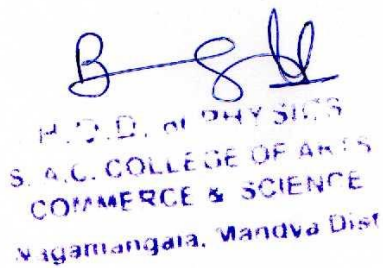 H.O.D. of PHYSICS
S. A.C. COLLEGE OF ARTS
COMMERCE & SCIENCE
Nagamangala, Mandya Dist